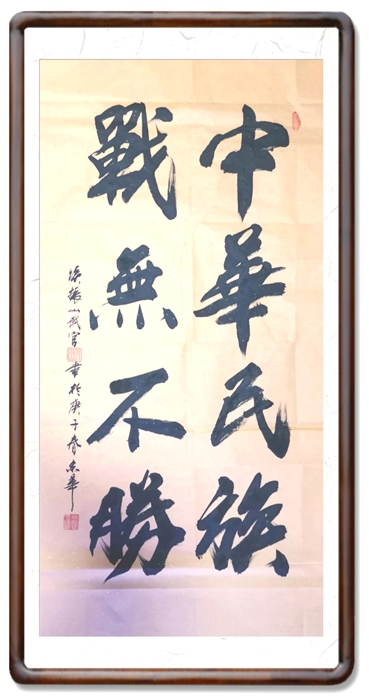 中華民族
戰無不勝
書於庚子春京華